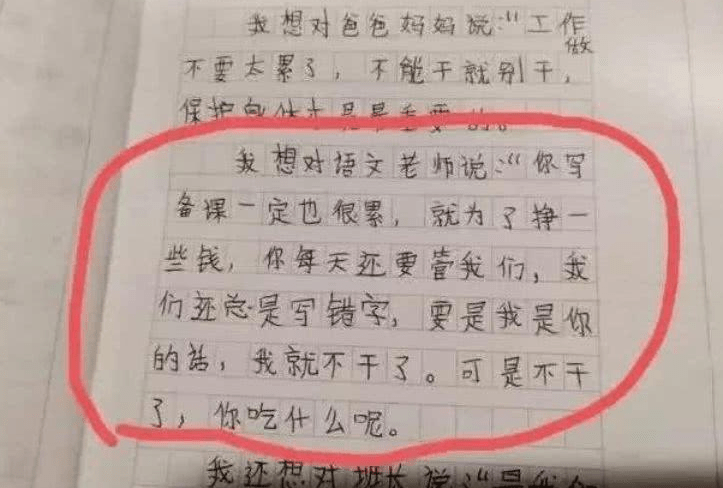 我想对爸爸妈妈说:“工作
做
不要太累了，不能干就别干，
保护身体才是最重要的。
我想对语文老师说:“你写
备课一定也很累，就为了挣一
些钱，你每天还要管我们，我
们还总是写错字，要是我是你
的话，我就不干了。可是不干
了，你吃什么呢。
我还想对班长说“是我